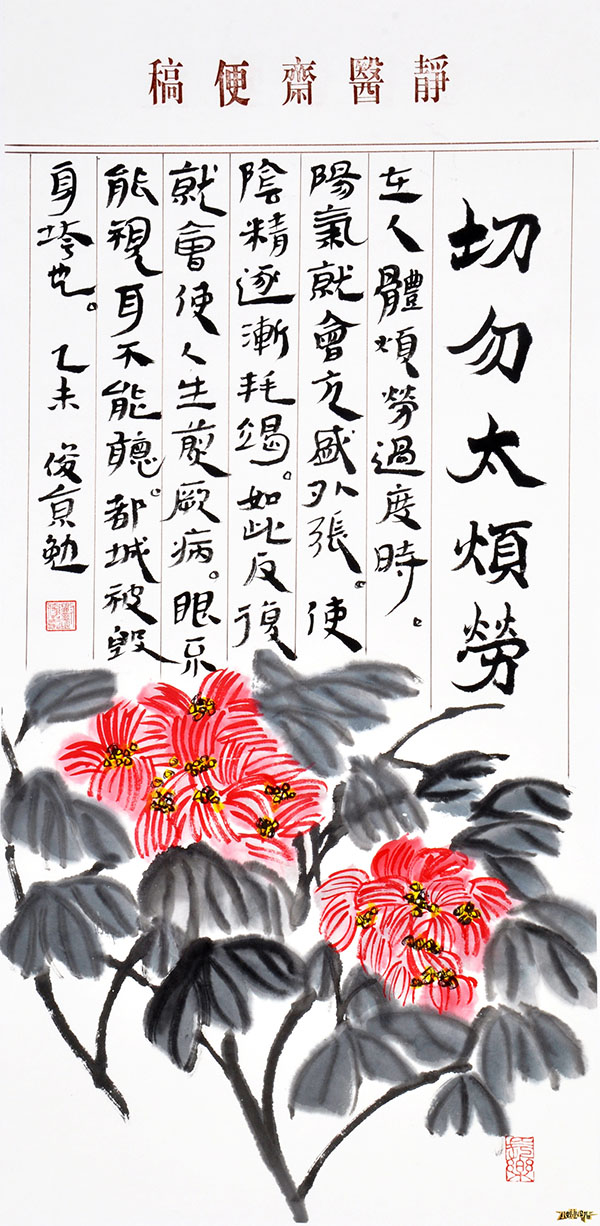 靜醫齋便稿
切勿太煩勞
在人體煩勞過度時。
陽氣就會亢盛外張。使
陰精逐漸耗竭。如此反復
就會使人生煎厥病。眼不
能視耳不能聽。都城被毀
身垮也。乙未 俊貞勉